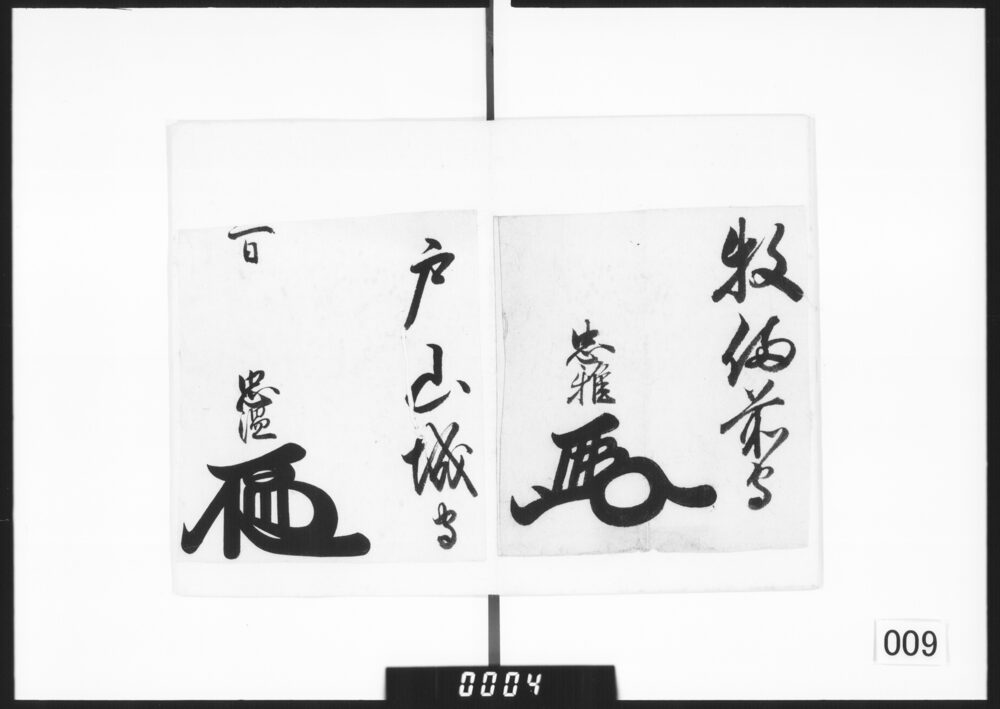 牧備前守
忠雅
戸山城守
忠温
百
009
0004